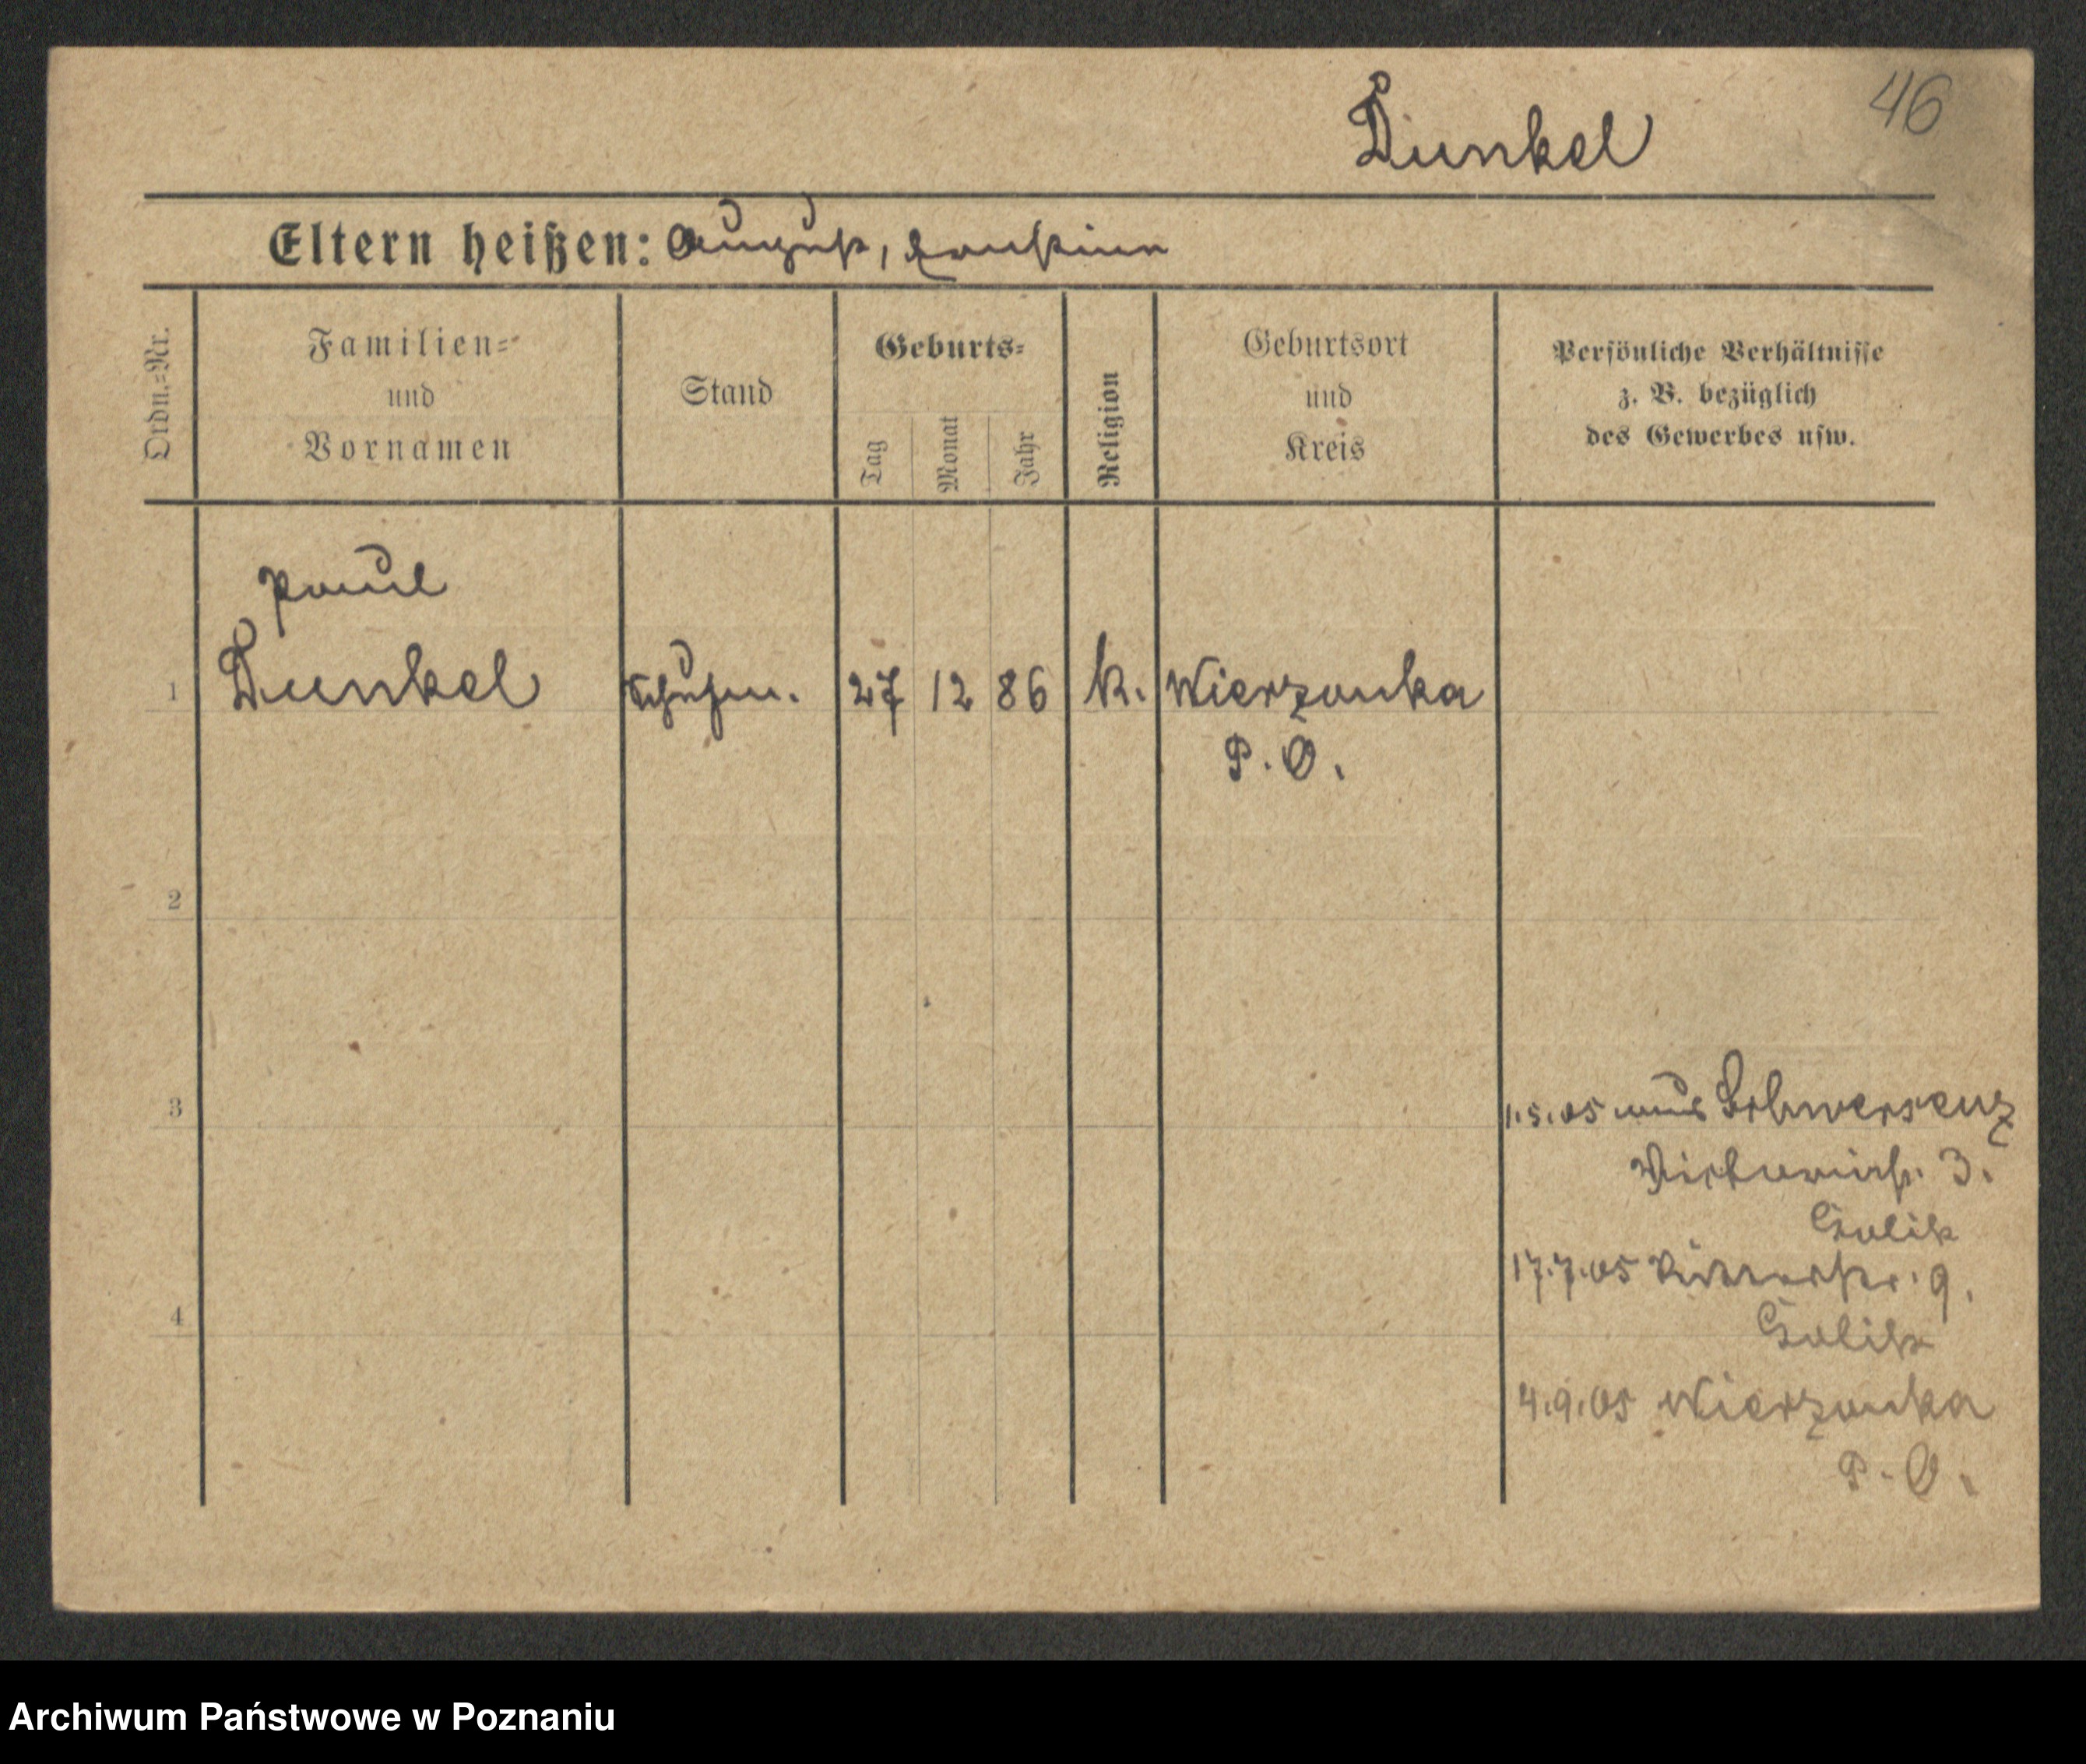 46
Dunkel
Eltern heißen: August, Ernstine
Ordn.=Nr.
Familien=
und
Vornamen
Stand
Geburts=
Tag
Monat
Jahr
Religion
Geburtsort
und
Kreis
Persönliche Verhältnisse
z. B. bezüglich
des Gewerbes usw.
Paul
1 Dunkel Schuhm. 27 12 86 k. Wierzonka
P. O.
2
3
1.5.05 aus Schwersenz
Victoriastr. 3.
Golik
17.7.05 9.
4
Golik
4.9.05 Wierzonka
P. O.
Archiwum Państwowe w Poznaniu